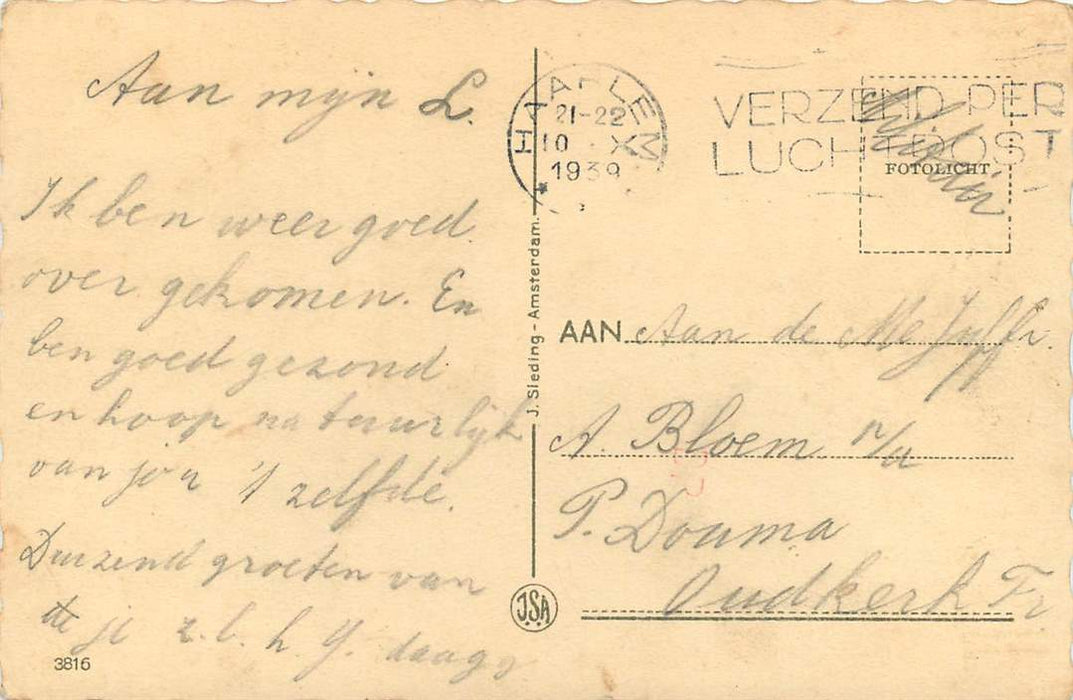 Aan mijn L.
Ik ben weer goed
over gekomen. En
ben goed gezond
en hoop natuurlijk
van jou 't zelfde.
Duizend groeten van
je z.l.h. G.
3816
HAARLEM
21-22
10 X
1939
VERZEND PER
LUCHTPOST
FOTOLICHT
J. Sleding - Amsterdam.
J.S.A
AAN Aan de Mej Juffr.
A. Bloem p/a
P. Douma
Oudkerk Fr